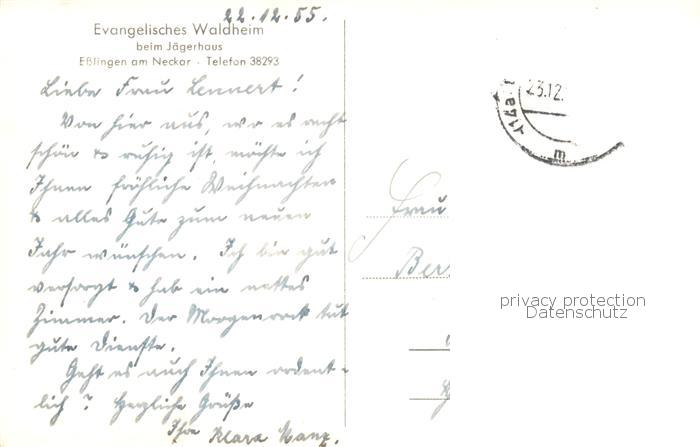 22.12.55.
Evangelisches Waldheim
beim Jägerhaus
Eßlingen am Neckar · Telefon 38293
Liebe Frau Lennert!
Von hier aus, wo es recht
schön & ruhig ist, möchte ich
Ihnen fröhliche Weihnachten
& alles Gute zum neuen
Jahr wünschen. Ich bin gut
versorgt & hab ein nettes
Zimmer. Der Morgenrock tut
gute Dienste.
Geht es auch Ihnen ordent-
lich? Herzliche Grüße
Ihre Klara Manz.
23.12.
11-12
m
Frau
Ber
privacy protection
Datenschutz